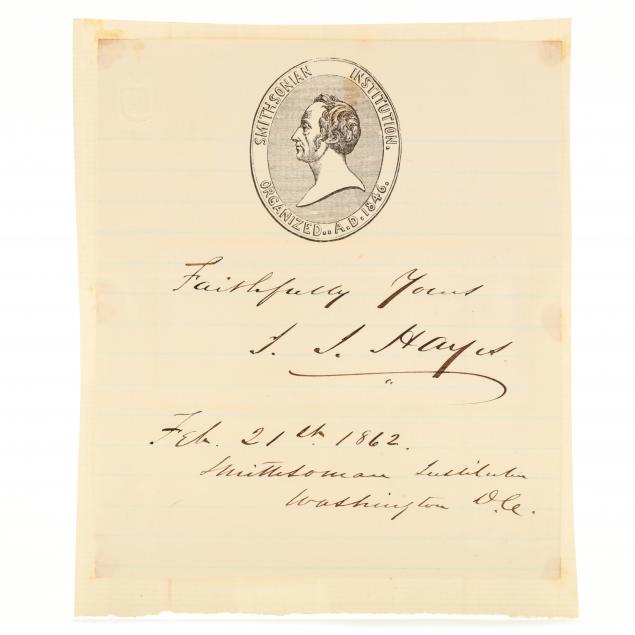 SMITHSONIAN INSTITUTION.
ORGANIZED.. A.D. 1846.
Faithfully Yours
I. I. Hayes
Feb. 21st. 1862.
Smithsonian Institution
Washington D.C.